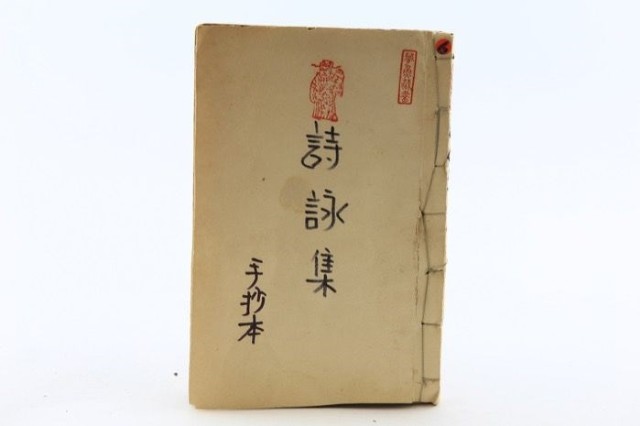 詩詠集
手抄本
6